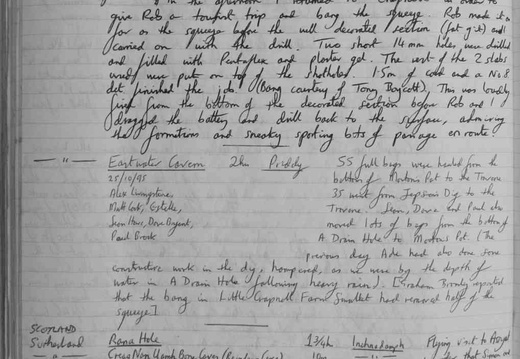 give Rob a tourist trip and bang the squeeze. Rob made it as
far as the squeeze before the well decorated section (fat git) and I
carried on with the drill. Two short 14mm holes were drilled
and filled with Pentaflex and plaster gel. The rest of the 2 slabs
used were put on top of the shotholes. 1.5m of cord and a No 8
det finished the job. (Bang courtesy of Tony Boycott). This was loudly
fired from the bottom of the decorated section before Rob and I
dragged the battery and drill back to the surface, admiring
the formations and sneaky sporting bits of passage en route.
— " — Eastwater Cavern 2hr Priddy 55 full bags were hauled from the
25/10/95 bottom of Morton's Pot to the Traverse
Alex Livingstone, 35 went from Jepson's Dig to the
Matt Cook, Estelle, Traverse. Sean, Dave and Paul also
Sean Howe, Dave moved lots of bags from the bottom of
Paul Brock A Drain Hole to Morton's Pot. (The
previous day Ade had also done some
construction work in the dig, hampered, as we were by the depth of
water in A Drain Hole following heavy rain). [Graham Bromley reported
that the bang in Little Crapnell Farm Swallet had removed half of the
squeeze]
SCOTLAND
Sutherland Rana Hole 1 3/4hr Inchnadamph Flying visit to Assynt